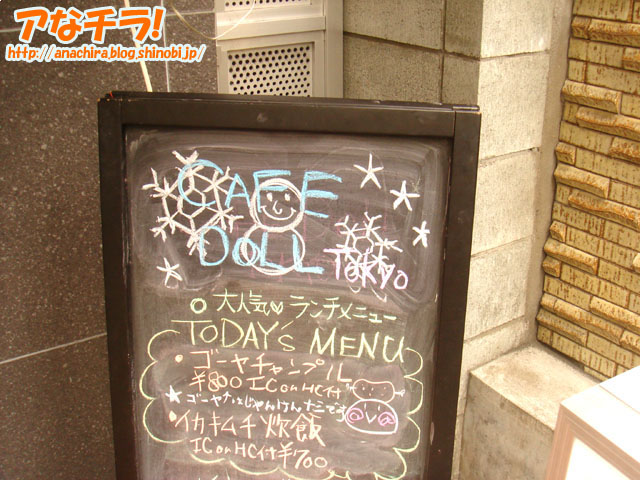 アなチラ!
http://anachira.blog.shinobi.jp/
CAFE
DOLL
TOKYO
大人気♡ランチメニュー
TODAY'S MENU
・ゴーヤチャンプル
¥800 IC or HC付
★ゴーヤ
・イカキムチ炊飯
IC or HC付¥700